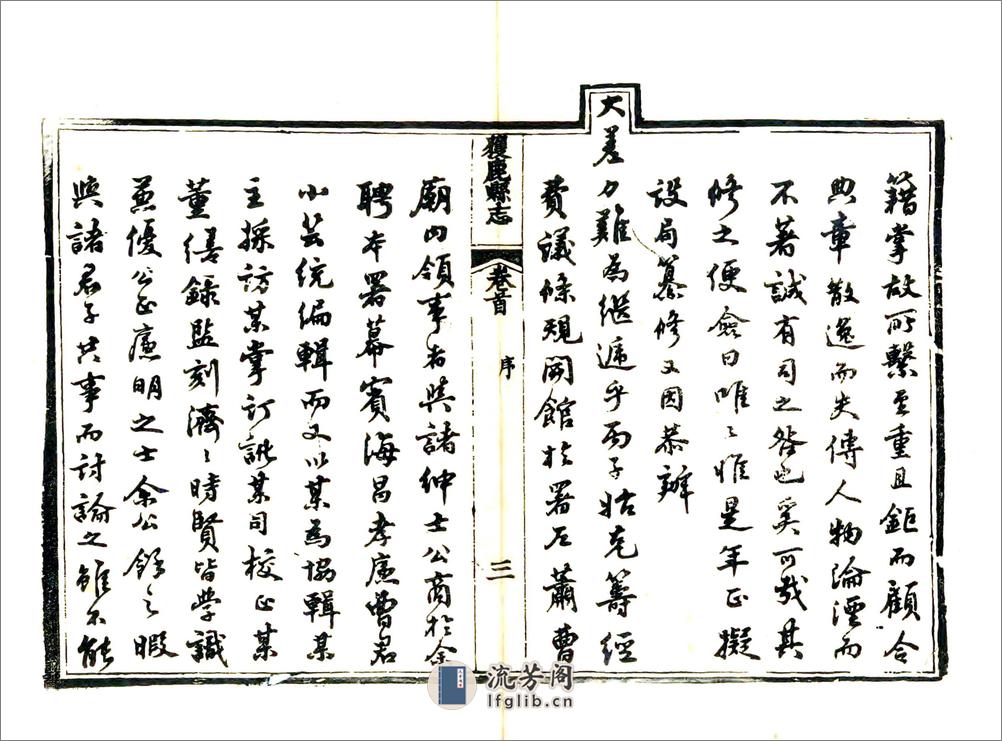 籍掌故所繫至重且鉅而顧令
典章散逸而失傳人物淪湮而
不著誠有司之咎也奚可哉其
修之便僉曰唯〻惟是年正擬
設局纂修又因恭辦
大差力難為繼遞乎丙子始克籌經
費議條規開館於署左蕭曹
獲鹿縣志 卷首 序 三
廟內領事者與諸紳士公商於余
聘本署幕賓海昌孝廉曹君
小芸統編輯而又以某為協輯某
主採訪某掌訂訛某司校正某
董繕錄監刻濟〻時賢皆學識
兼優公正廉明之士余公餘之暇
與諸君子共事而討論之雖不能
流芳阁
lfglib.cn